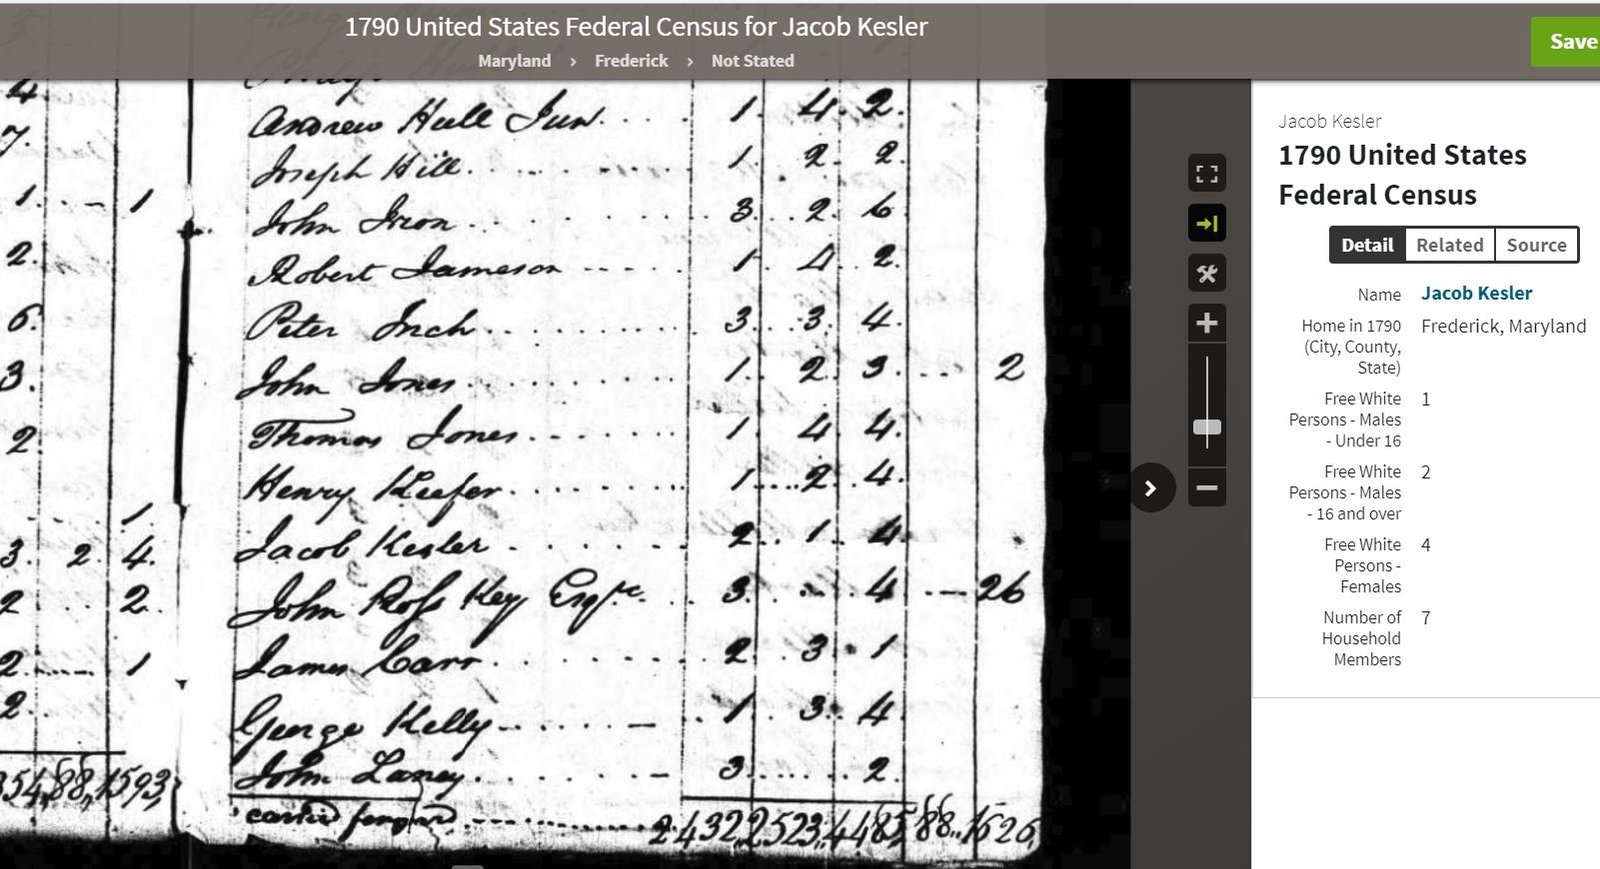 1790 United States Federal Census for Jacob Kesler
Maryland › Frederick › Not Stated
Save
4.
7.
1. . - - 1
2.
6.
3.
2.
1.
3. 2. 4.
2 . . 2.
2. . . . . 1
2.
354,88,1593,
Philip
Andrew Hull Jun. . . . 1. 4. 2.
Joseph Hill. . . . . . . . 1. 2. 2.
John Iron . . . . . . . . 3. . 2. 6.
Robert Jameson - - - - 1. 4. 2.
Peter Inch . . . . . . . . 3. . 3. 4.
John Jones . . . . . . . . 1. . 2. 3. . - - 2
Thomas Jones . . . . . . . 1. 4. 4.
Henry Keefer . . . . . . . 1. . . . 2. 4.
Jacob Kesler . . . . . . . 2. . 1. 4.
John Ross Key Esqre. . . 3. . . . 4. - - 26
James Carr . . . . . . . . 2. . 3. 1
George Kelly - . . . . — . . 1. . 3. . 4.
John Laney . . . . . . — 3. . . . . 2.
carried forward - - - - - - 2432,2523,4485,88,1626,
Jacob Kesler
1790 United States
Federal Census
Detail Related Source
Name Jacob Kesler
Home in 1790 Frederick, Maryland
(City, County,
State)
Free White 1
Persons - Males
- Under 16
Free White 2
Persons - Males
- 16 and over
Free White 4
Persons -
Females
Number of 7
Household
Members